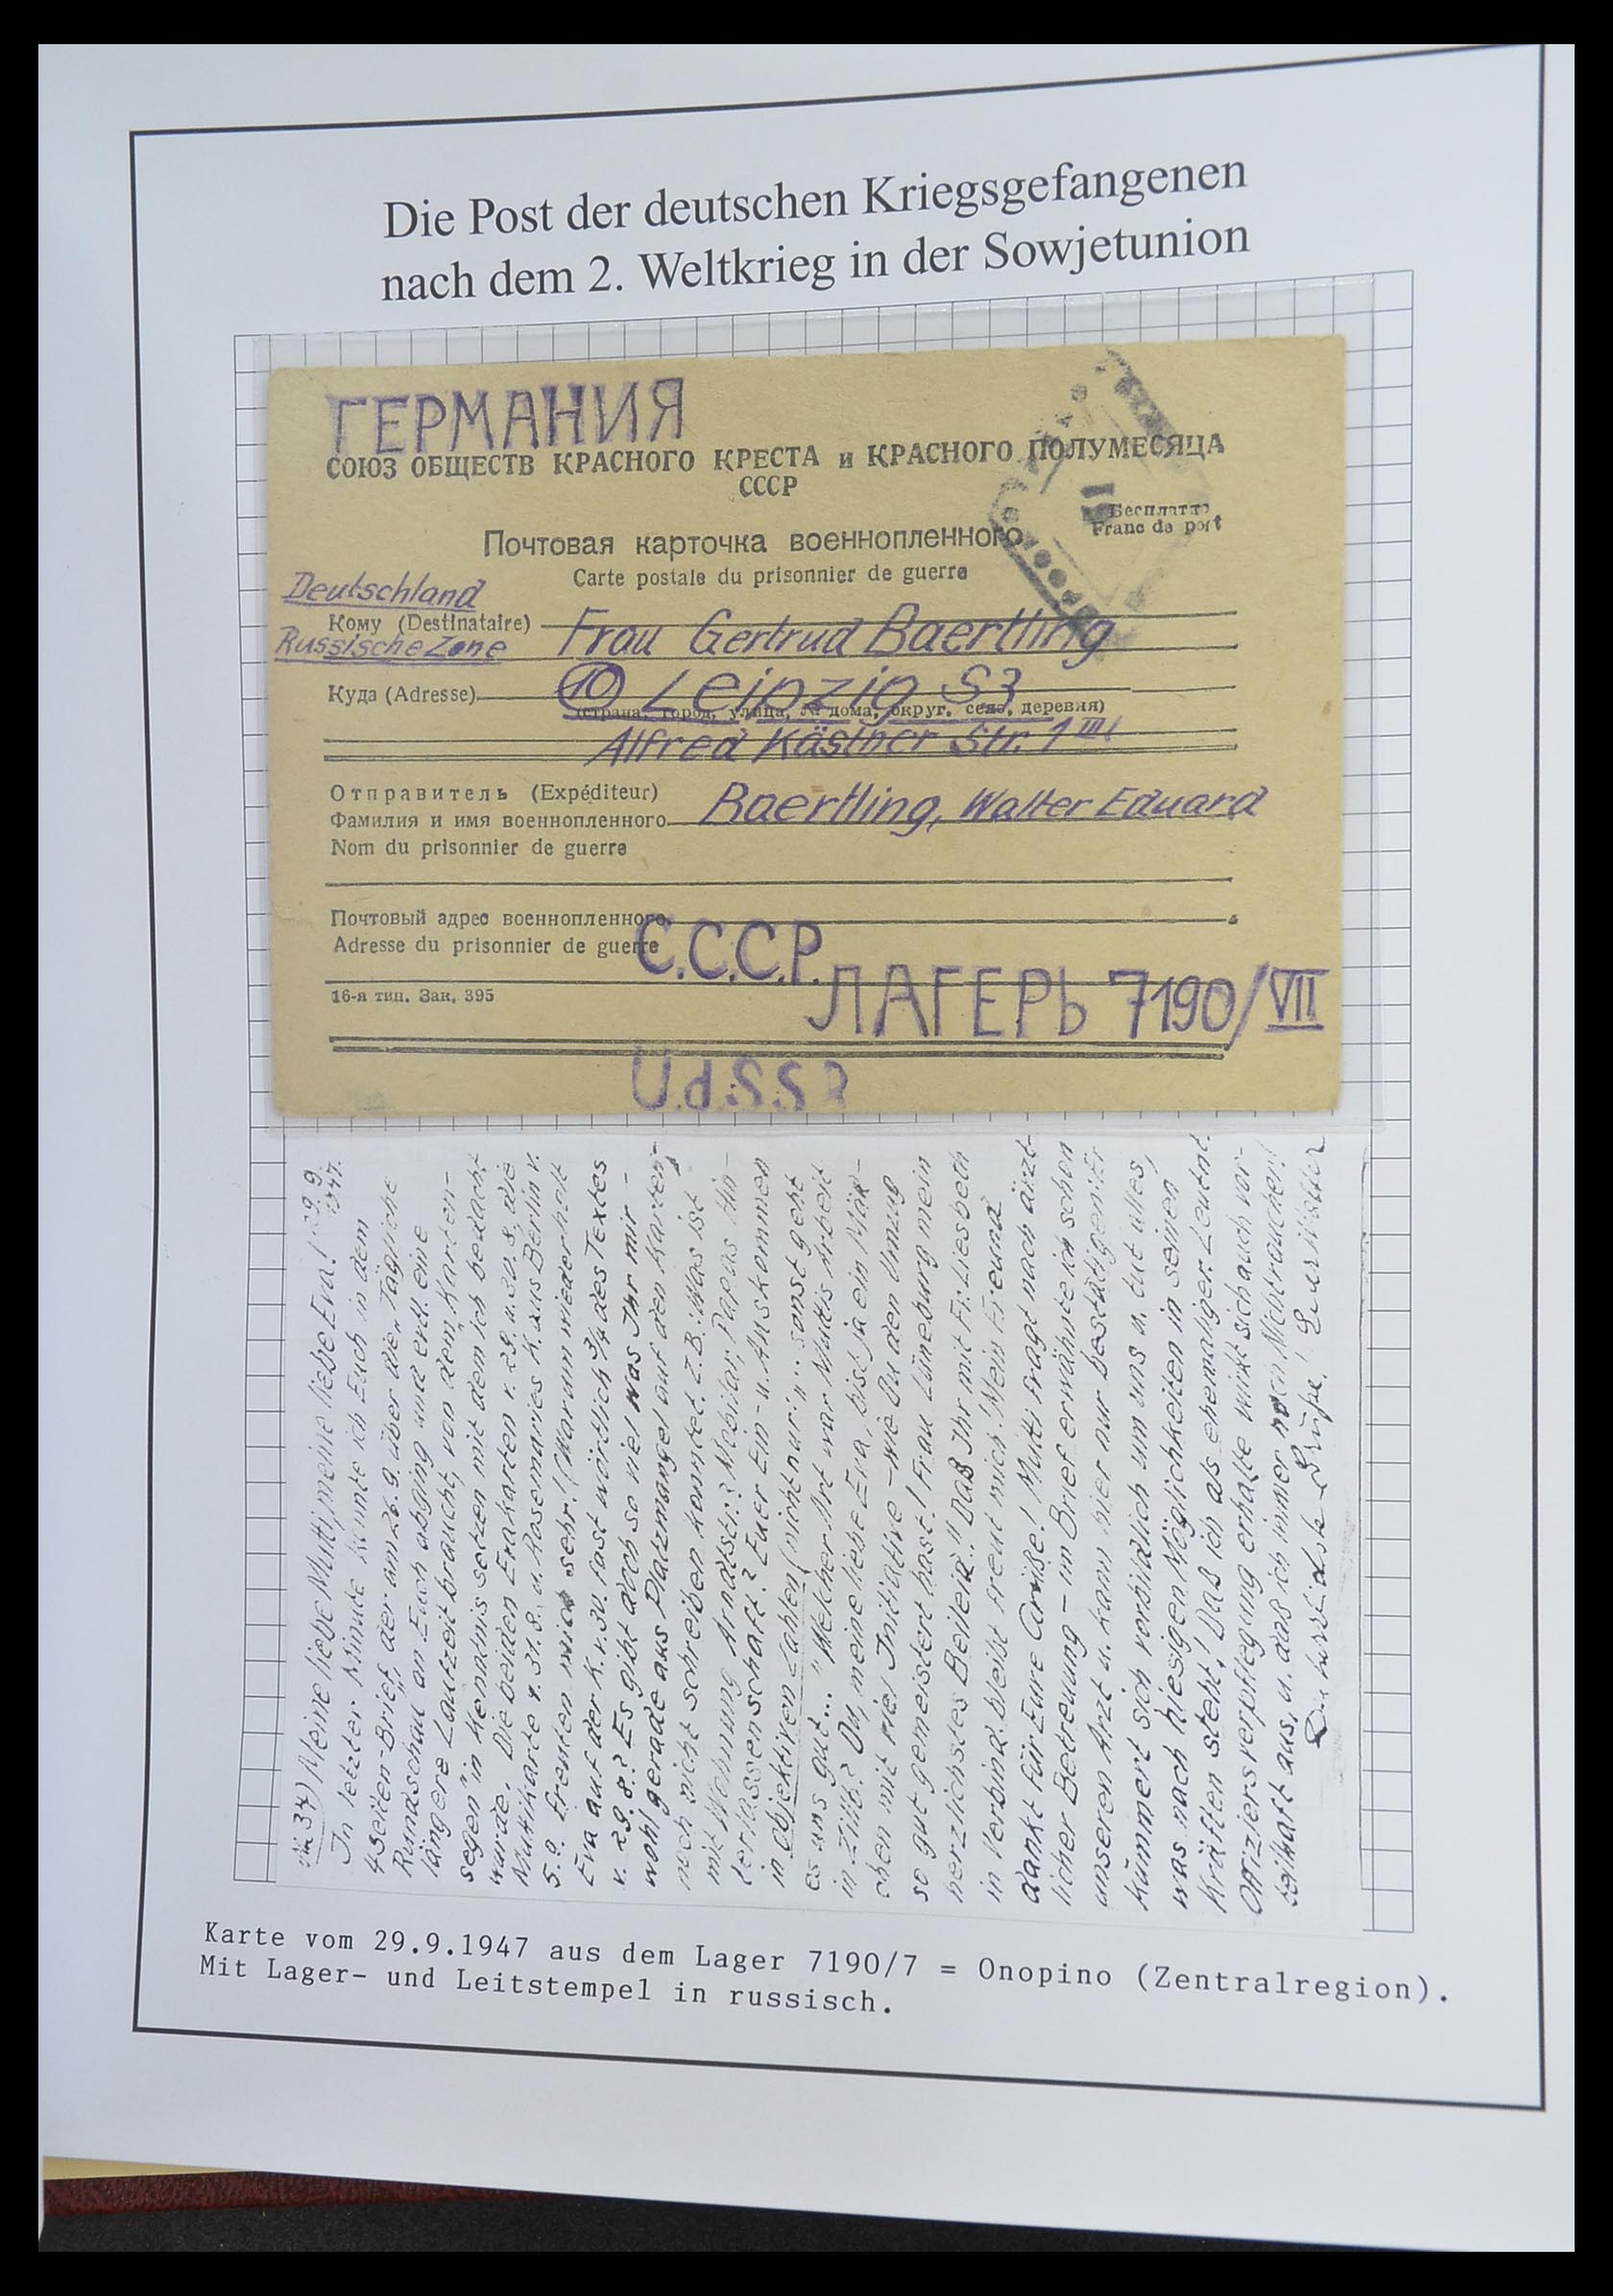 Die Post der deutschen Kriegsgefangenen
nach dem 2. Weltkrieg in der Sowjetunion
ГЕРМАНИЯ
СОЮЗ ОБЩЕСТВ КРАСНОГО КРЕСТА и КРАСНОГО ПОЛУМЕСЯЦА
СССР
Бесплатно
Franc de port
Почтовая карточка военнопленного
Carte postale du prisonnier de guerre
Deutschland
Кому (Destinataire) Frau Gertrud Baertling
Russische Zone
Куда (Adresse) 10 Leipzig S3
(страна, город, улица, № дома, округ, село, деревня)
Alfred Kästner Str. 1 III
Отправитель (Expéditeur)
Фамилия и имя военнопленного Baertling, Walter Eduard
Nom du prisonnier de guerre
Почтовый адрес военнопленного
Adresse du prisonnier de guerre С.С.С.Р.
ЛАГЕРЬ 7190/VII
16-я тип. Зак. 395
U.d.S.S.R
37) Meine liebe Mutti, meine liebe Eva! 29.9.1947.
In letzter Minute konnte ich Euch in dem
4 Seiten-Brief, der am 26.9. über die „Tägliche
Rundschau" an Euch abging und evtl. eine
längere Laufzeit braucht, von dem „Karten-
segen" in Kenntnis setzen mit dem ich bedacht
wurde. Die beiden Evakarten v. 29. u. 30.8., die
Muttikarte v. 31.8. u. Rosemaries K. aus Berlin v.
5.9. freuten mich sehr! (Warum wiederholt
Eva auf der K. v. 30. fast wörtlich 3/4 des Textes
v. 29.8.? Es gibt doch so viel was Ihr mir -
wohl gerade aus Platzmangel auf den Karten -
noch nicht schreiben konntet. z.B.: Was ist
mit Wohnung Arndtstr.? Mobilar, Papas Hin-
terlassenschaft? Euer Ein- u. Auskommen
in objektiven Zahlen (nicht nur: „.. sonst geht
es uns gut..." Welcher Art war Muttis Arbeit
in Zillb.? Du, meine liebe Eva, bist ja ein Mäd-
chen mit viel Initiative - wie Du den Umzug
so gut gemeistert hast! Frau Lüneburg mein
herzlichstes Beileid..!! Daß Ihr mit Fr. Liesbeth
in Verbind. bleibt freut mich! Mein Freund
dankt für Eure Grüße! Mutti fragt nach ärzt-
licher Betreuung - im Brief erwähnte ich schon
unseren Arzt u. kann hier nur bestätigen: Er
kümmert sich vorbildlich um uns u. tut alles,
was nach hiesigen Möglichkeiten in seinen
Kräften steht! Daß ich als ehemaliger Leutnt.
Offiziersverpflegung erhalte wirkt sich auch vor-
teilhaft aus, u. daß ich immer noch Nichtraucher!
herzlichste Grüße! Euer Walter
Karte vom 29.9.1947 aus dem Lager 7190/7 = Onopino (Zentralregion).
Mit Lager- und Leitstempel in russisch.